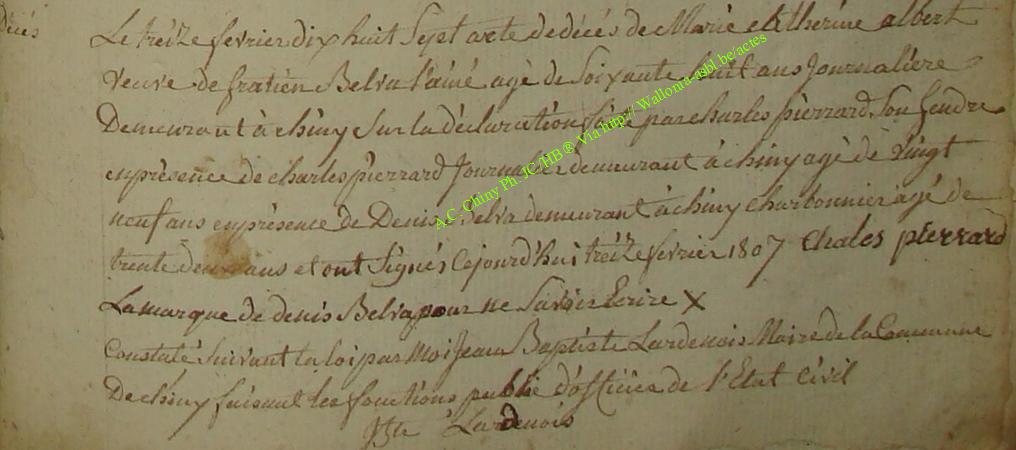 Décés
Le treize fevrier dix huit Sept acte de décés de Marie Catherine albert
veuve de fratien Belva l'ainé agé de Soixante huit ans Journaliere
Demeurant à chiny Sur la déclaration faite par charles pierrard Son Gendre
en présence de charles pierrard Journalier demeurant à chiny agé de Vingt
neuf ans en présence de Denis Belva demeurant à chiny charbonnier agé de
trente deux ans et ont Signés Cejourd'hui treize fevrier 1807 Chales pierrard
La marque de denis Belva pour ne Savoir Ecrire X
Constaté Suivant la loi par Moi Jean Baptiste Lardenois Maire de la Commune
De chiny faisant les fonctions public d'officier de l'Etat Civil
Jbte Lardenois
A.C. Chiny Ph. JC/HB ® Via http:// Wallonia-asbl.be/actes